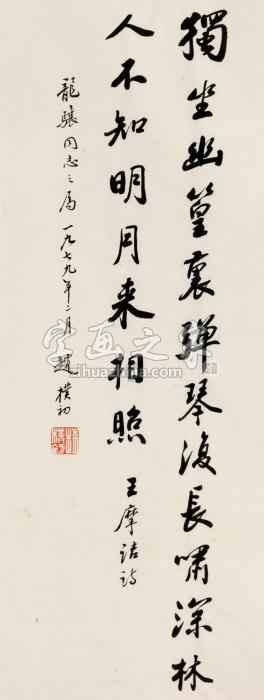 獨坐幽篁裏彈琴復長嘯深林
人不知明月来相照
王摩詰詩
龍驤同志之屬 一九七九年二月 趙樸初
字画之家
ihuazhijia.com